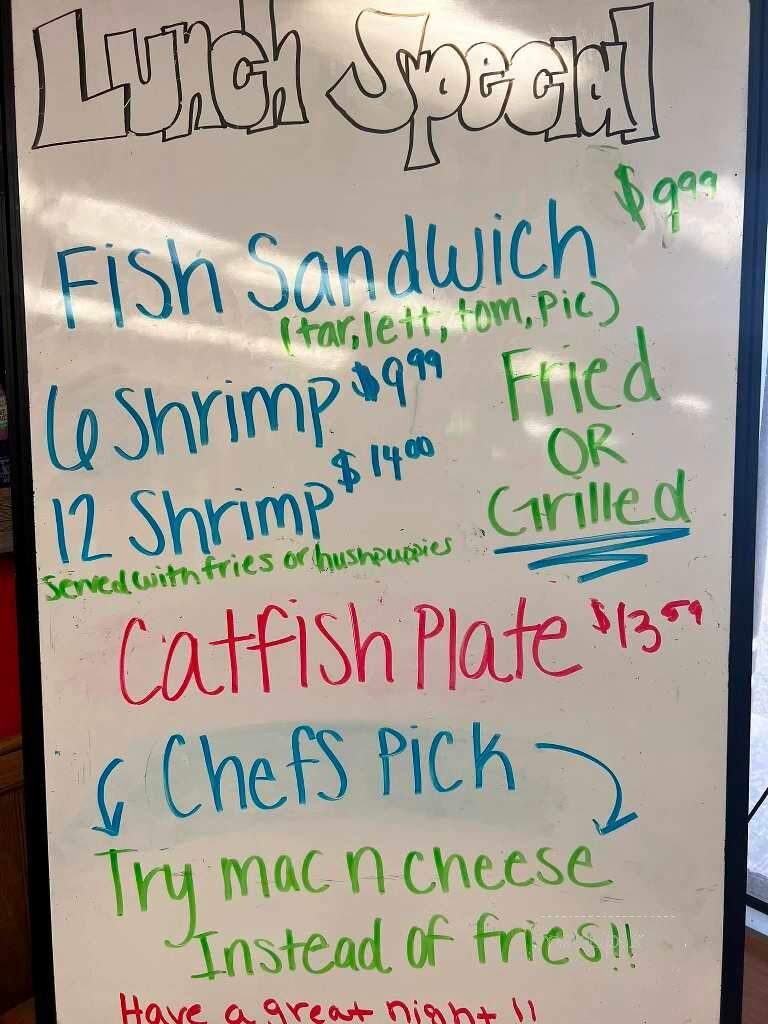 Lunch Special
$9⁹⁹
Fish Sandwich
(tar, lett, tom, pic)
6 Shrimp $9⁹⁹
Fried
OR
Grilled
12 Shrimp $14⁰⁰
Served with fries or hushpuppies
Catfish Plate $13⁵⁹
Chefs Pick
Try mac n cheese
Instead of fries!!
Have a great night !!